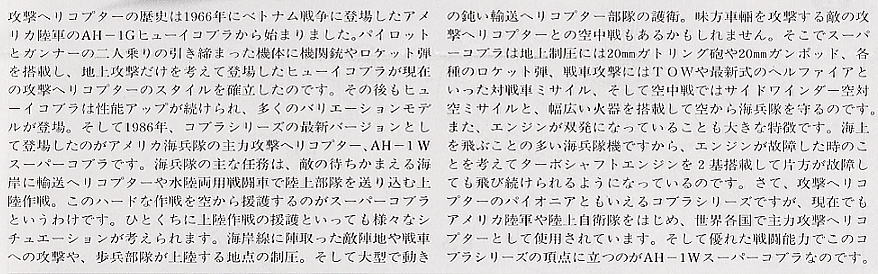 攻撃ヘリコプターの歴史は1966年にベトナム戦争に登場したアメ
リカ陸軍のAH−1Gヒューイコブラから始まりました。パイロット
とガンナーの二人乗りの引き締まった機体に機関銃やロケット弾
を搭載し、地上攻撃だけを考えて登場したヒューイコブラが現在
の攻撃ヘリコプターのスタイルを確立したのです。その後もヒュ
ーイコブラは性能アップが続けられ、多くのバリエーションモデ
ルが登場。そして1986年、コブラシリーズの最新バージョンとし
て登場したのがアメリカ海兵隊の主力攻撃ヘリコプター、AH−1W
スーパーコブラです。海兵隊の主な任務は、敵の待ちかまえる海
岸に輸送ヘリコプターや水陸両用戦闘車で陸上部隊を送り込む上
陸作戦。このハードな作戦を空から援護するのがスーパーコブラ
というわけです。ひとくちに上陸作戦の援護といっても様々なシ
チュエーションが考えられます。海岸線に陣取った敵陣地や戦車
への攻撃や、歩兵部隊が上陸する地点の制圧。そして大型で動き
の鈍い輸送ヘリコプター部隊の護衛。味方車輛を攻撃する敵の攻
撃ヘリコプターとの空中戦もあるかもしれません。そこでスーパ
ーコブラは地上制圧には20mmガトリング砲や20mmガンポッド、各
種のロケット弾、戦車攻撃にはTOWや最新式のヘルファイアと
いった対戦車ミサイル、そして空中戦ではサイドワインダー空対
空ミサイルと、幅広い火器を搭載して空から海兵隊を守るのです。
また、エンジンが双発になっていることも大きな特徴です。海上
を飛ぶことの多い海兵隊機ですから、エンジンが故障した時のこ
とを考えてターボシャフトエンジンを2基搭載して片方が故障し
ても飛び続けられるようになっているのです。さて、攻撃ヘリコ
プターのパイオニアともいえるコブラシリーズですが、現在でも
アメリカ陸軍や陸上自衛隊をはじめ、世界各国で主力攻撃ヘリコ
プターとして使用されています。そして優れた戦闘能力でこのコ
ブラシリーズの頂点に立つのがAH−1Wスーパーコブラなのです。